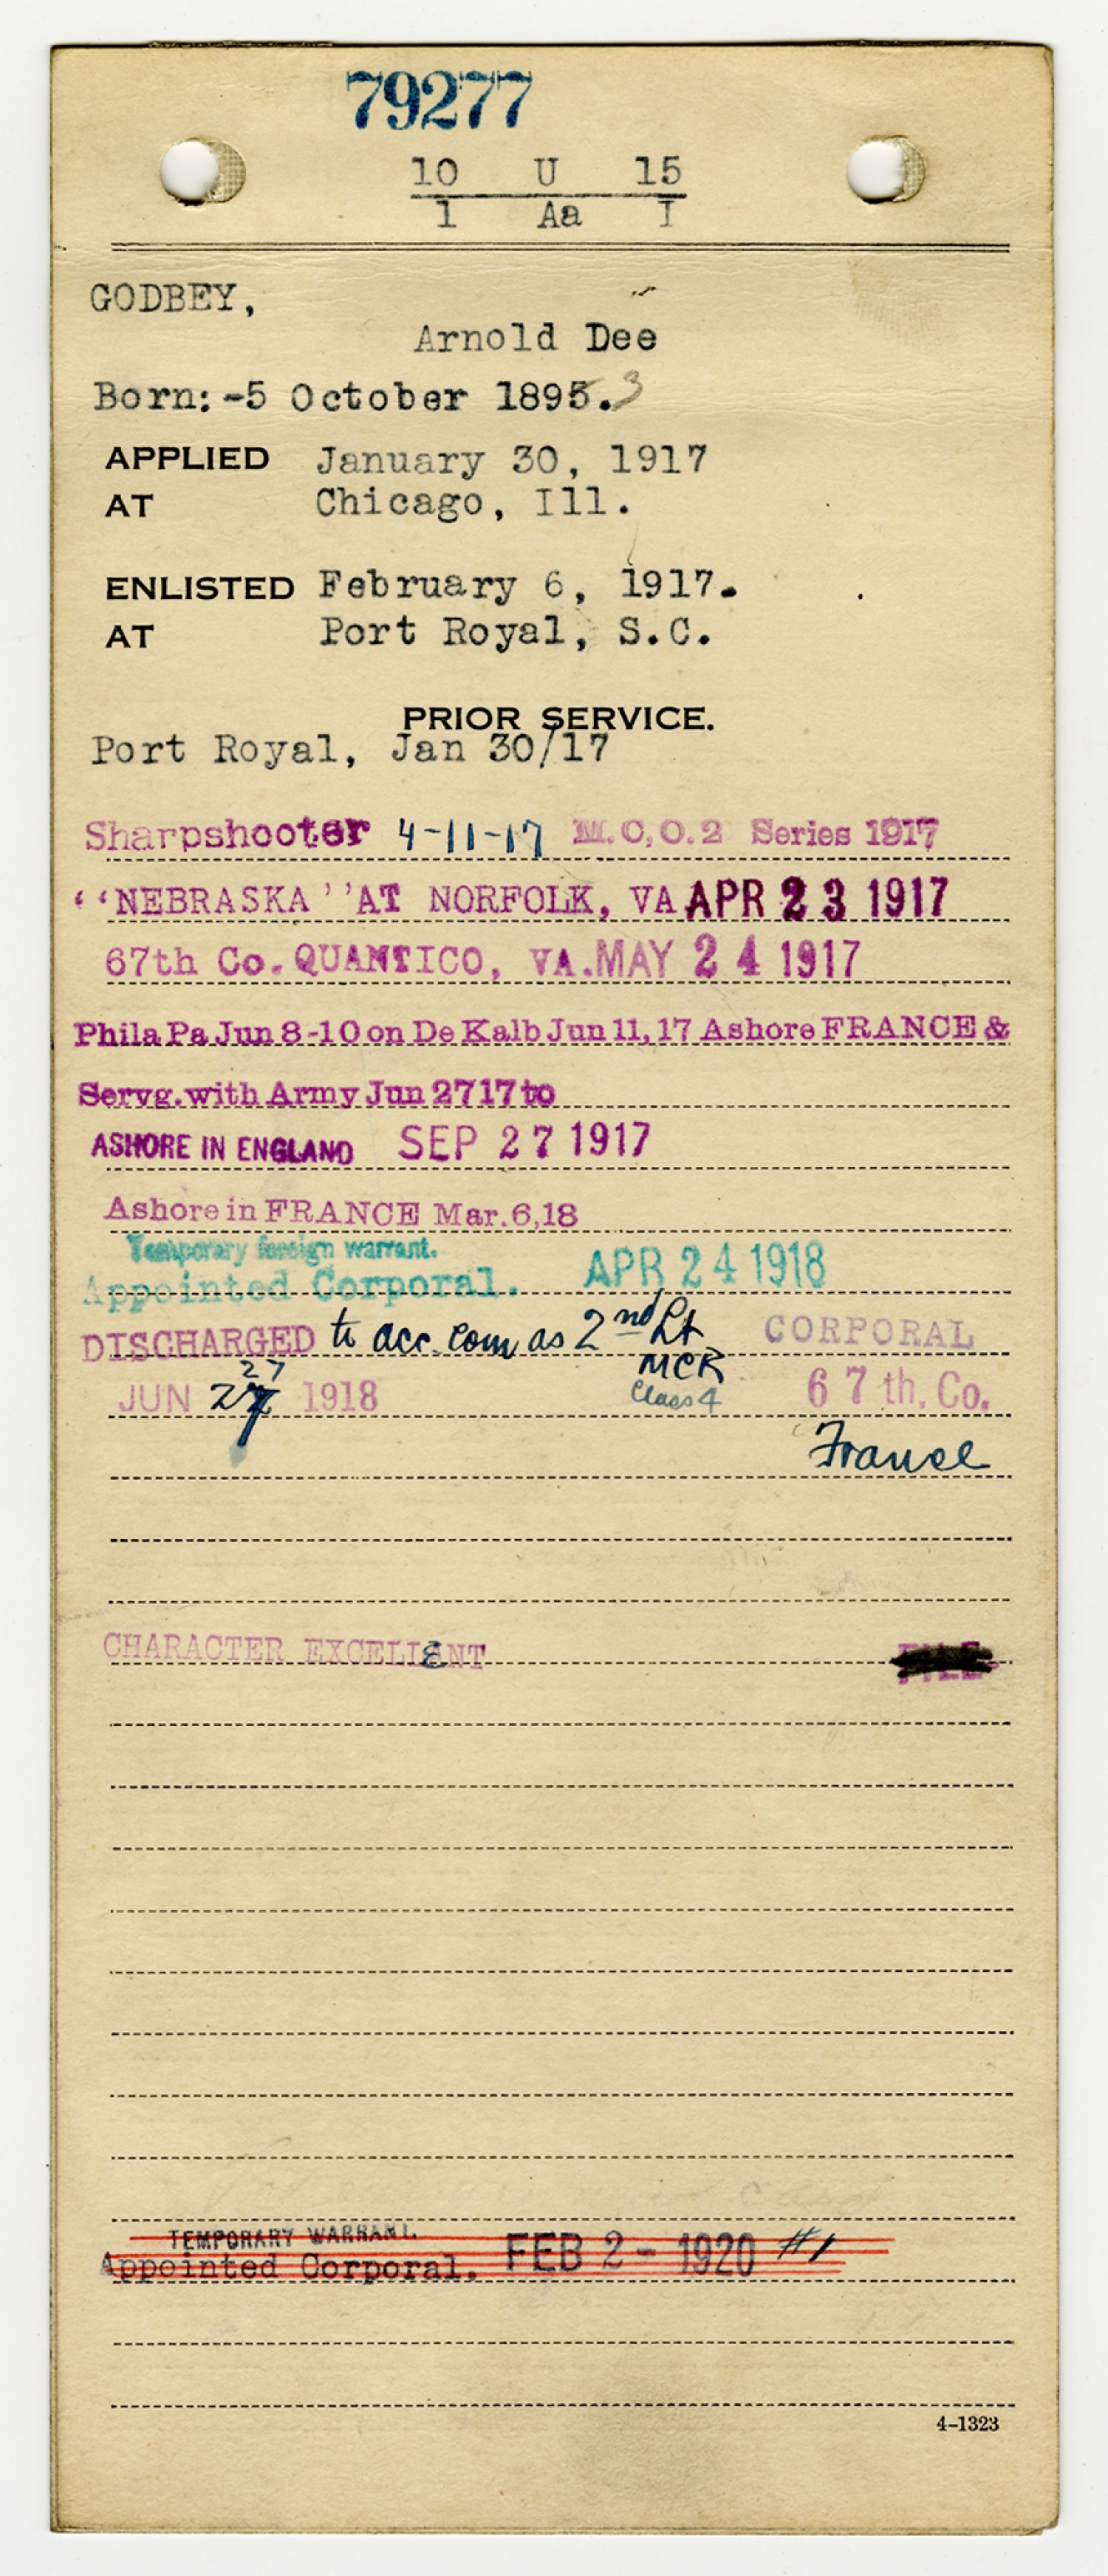 79277
10 U 15
1 Aa I
GODBEY,
Arnold Dee
Born:-5 October 1895.3
APPLIED January 30, 1917
AT Chicago, Ill.
ENLISTED February 6, 1917.
AT Port Royal, S.C.
PRIOR SERVICE.
Port Royal, Jan 30/17
Sharpshooter 4-11-17 M.C.O.2 Series 1917
"NEBRASKA" AT NORFOLK, VA APR 23 1917
67th Co. QUANTICO, VA. MAY 24 1917
Phila Pa Jun 8-10 on De Kalb Jun 11,17 Ashore FRANCE &
Servg. with Army Jun 27 17 to
ASHORE IN ENGLAND SEP 27 1917
Ashore in FRANCE Mar. 6,18
Temporary foreign warrant.
Appointed Corporal. APR 24 1918
DISCHARGED to acc. com as 2nd Lt CORPORAL
MCR
27
JUN 27 1918 Class 4 67th. Co.
France
CHARACTER EXCELLENT FILE.
TEMPORARY WARRANT.
Appointed Corporal. FEB 2- 1920 #1
4-1323